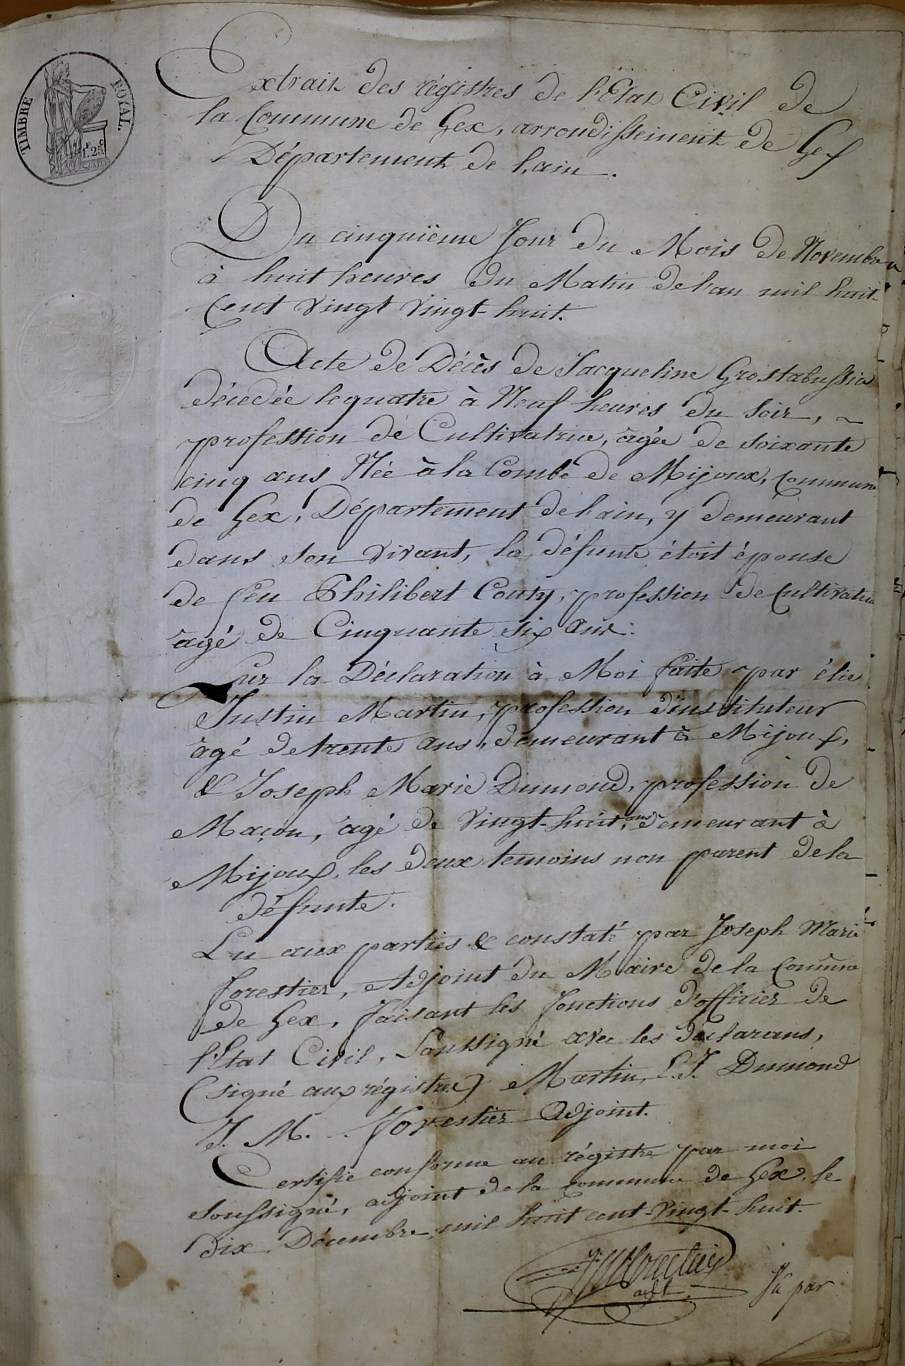 TIMBRE ROYAL.
1f. 25c
Extrait des régistres de l'Etat Civil de
la Commune de Gex, arrondissement de Gex
Département de l'ain.
Du cinquième Jour du Mois de Novembre
à huit heures du Matin de l'an mil huit
Cent vingt vingt-huit.
Acte de Décès de Jacqueline Grostabussia
décédée le quatre à Neuf heures du soir, ~
profession de Cultivatrice, agée de soixante
cinq ans Née à la Combe de Mijoux, Commune
de Gex, Département de l'ain, y demeurant
dans son vivant, la défunte étoit épouse
de feu Philibert Conty, profession de Cultivateur
agé de Cinquante six ans:
Sur la Déclaration à Moi faite par élie
Justin Martin, profession d'instituteur
âgé de trente ans, demeurant à Mijoux,
& Joseph Marie Dumond, profession de
Maçon, âgé de vingt-huit ans, demeurant à
Mijoux, les deux temoins non parent de la
défunte.
Lu aux parties & constaté par Joseph Marie
Forestier, Adjoint du Maire de la Commune
de Gex, faisant les fonctions d'officier de
l'Etat Civil, Soussigné avec les déclarans,
(signé aux régistre) Martin, E. J. Dumond
J. M. Forestier Adjoint.
Certifié conforme au régistre par moi
soussigné, adjoint de la commune de Gex, le
dix Décembre mil huit cent-vingt-huit.
JM Forestier
adjt
Vu par